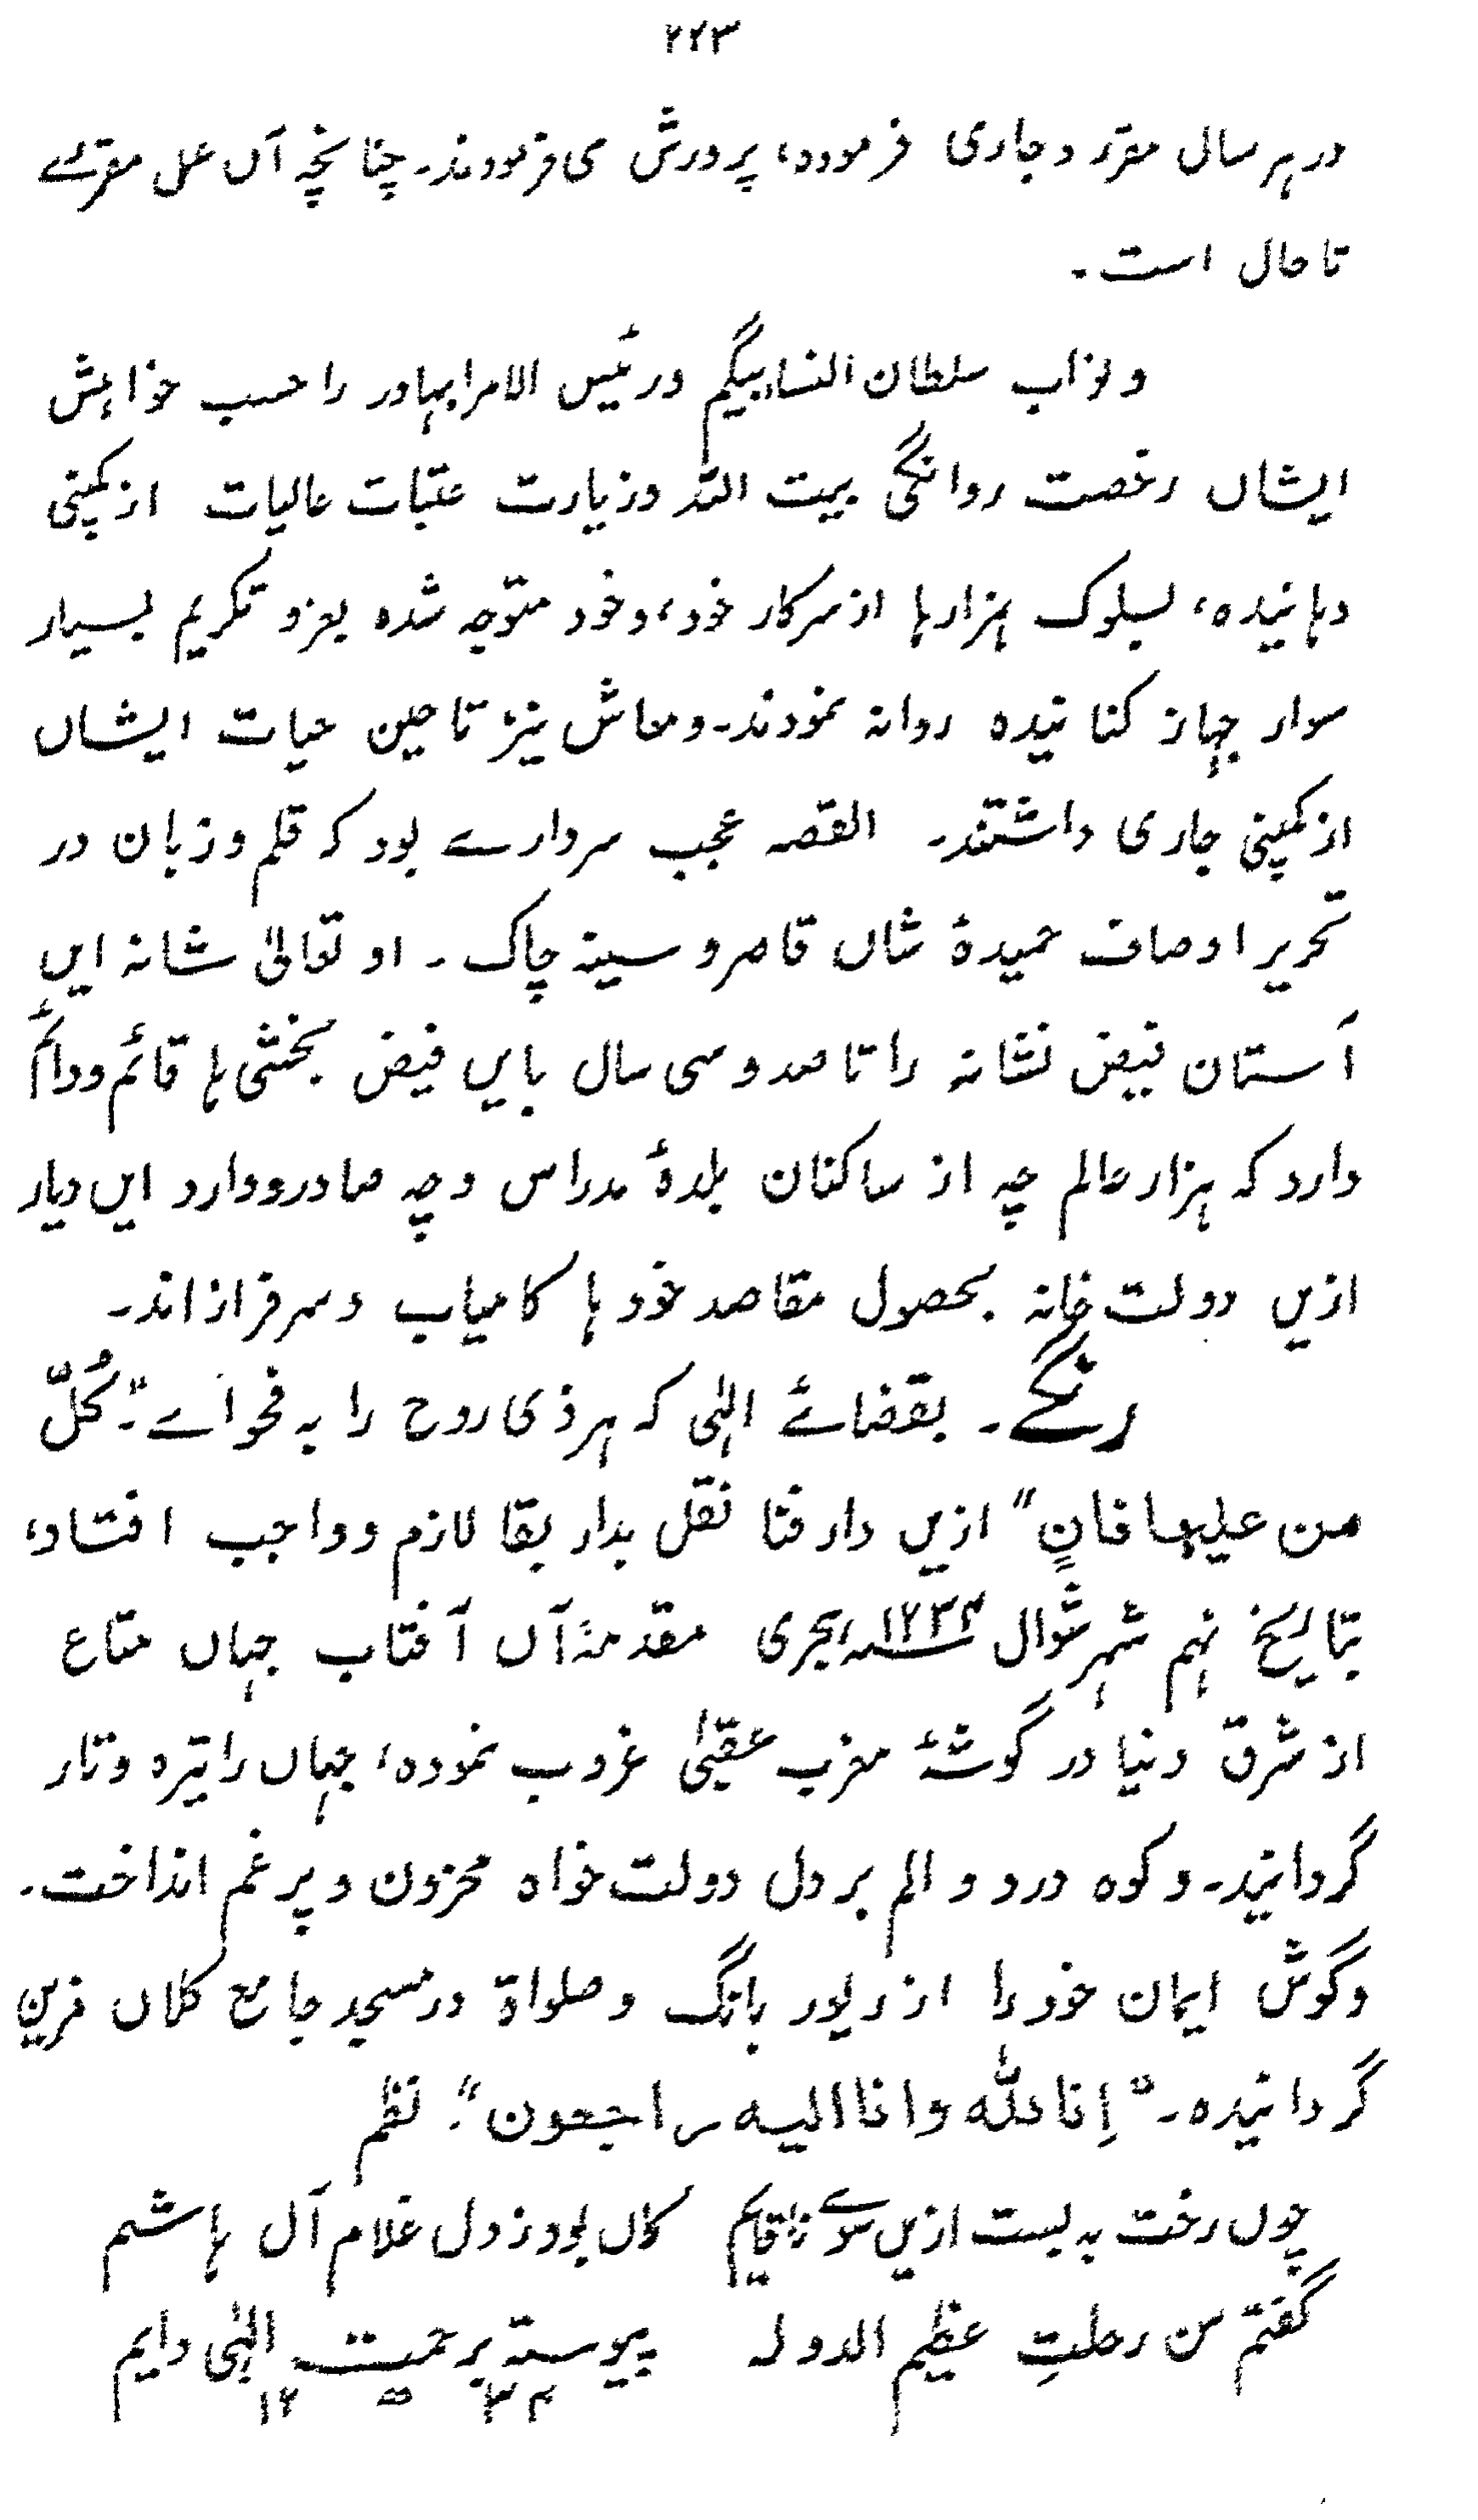 ۲۲۳
در ہر سال مقرّر و جاری فرمودہ، پرورش می فرمودند۔ چنانچہ آں عمل مقرّرے
تا حال است۔
و نواب سلطان النسا بیگم و رئیس الامرا بہادر را حسب خواہش
ایشاں رخصت روانگی بیت اللہ و زیارت عتبات عالیات از کمپنی
دہانیدہ، بسلوک ہزارہا از سرکار خود، و خود متوجہ شدہ بعز و تکریم بسیار
سوار جہاز کنانیدہ روانہ نمودند۔ و معاش نیز تا حین حیات ایشاں
از کمپنی جاری داشتند۔ القصہ عجب سردارے بود کہ قلم و زبان در
تحریر اوصاف حمیدۂ شاں قاصر و سینہ چاک۔ او تعالیٰ شانہ ایں
آستان فیض نشانہ را تا صد و سی سال بایں فیض بخشی ہا قائم و دائم
دارد کہ ہزار عالم چہ از ساکنان بلدۂ مدراس و چہ صادر و وارد ایں دیار
ازیں دولت خانہ بحصول مقاصد خودہا کامیاب و سرفراز اند۔
رنگے۔ بقضائے الٰہی کہ ہر ذی روح را بہ فحوائے "کُلّ
من علیہا فانٍ" ازیں دار فنا نقل بدار بقا لازم و واجب افتاد،
بتاریخ نہم شہر شوال ۱۲۳۴ سنہ ہجری مقدمۂ آں آفتاب جہاں متاع
از شرق دنیا در گوشۂ مغرب عقبیٰ غروب نمودہ، جہاں را تیرہ و تار
گردانید۔ و کوہ درد و الم بر دل دولت خواہ محزون و پرغم انداخت۔
و گوش ایمان خود را از زیور بانگ و صلواۃ در مسجد جامع کلاں مزین
گردانیدہ۔ "اِنا للّٰہ وانا الیہ راجعون"۔ نظم
چوں رخت بہ بست ازیں سرے قایم کاں بود ز دل غلام آل ہاشم
گفتم سن رحلتِ عظیم الدولہ پیوستہ برحمت الٰہی دایم
۱۲ ھ ۳۴